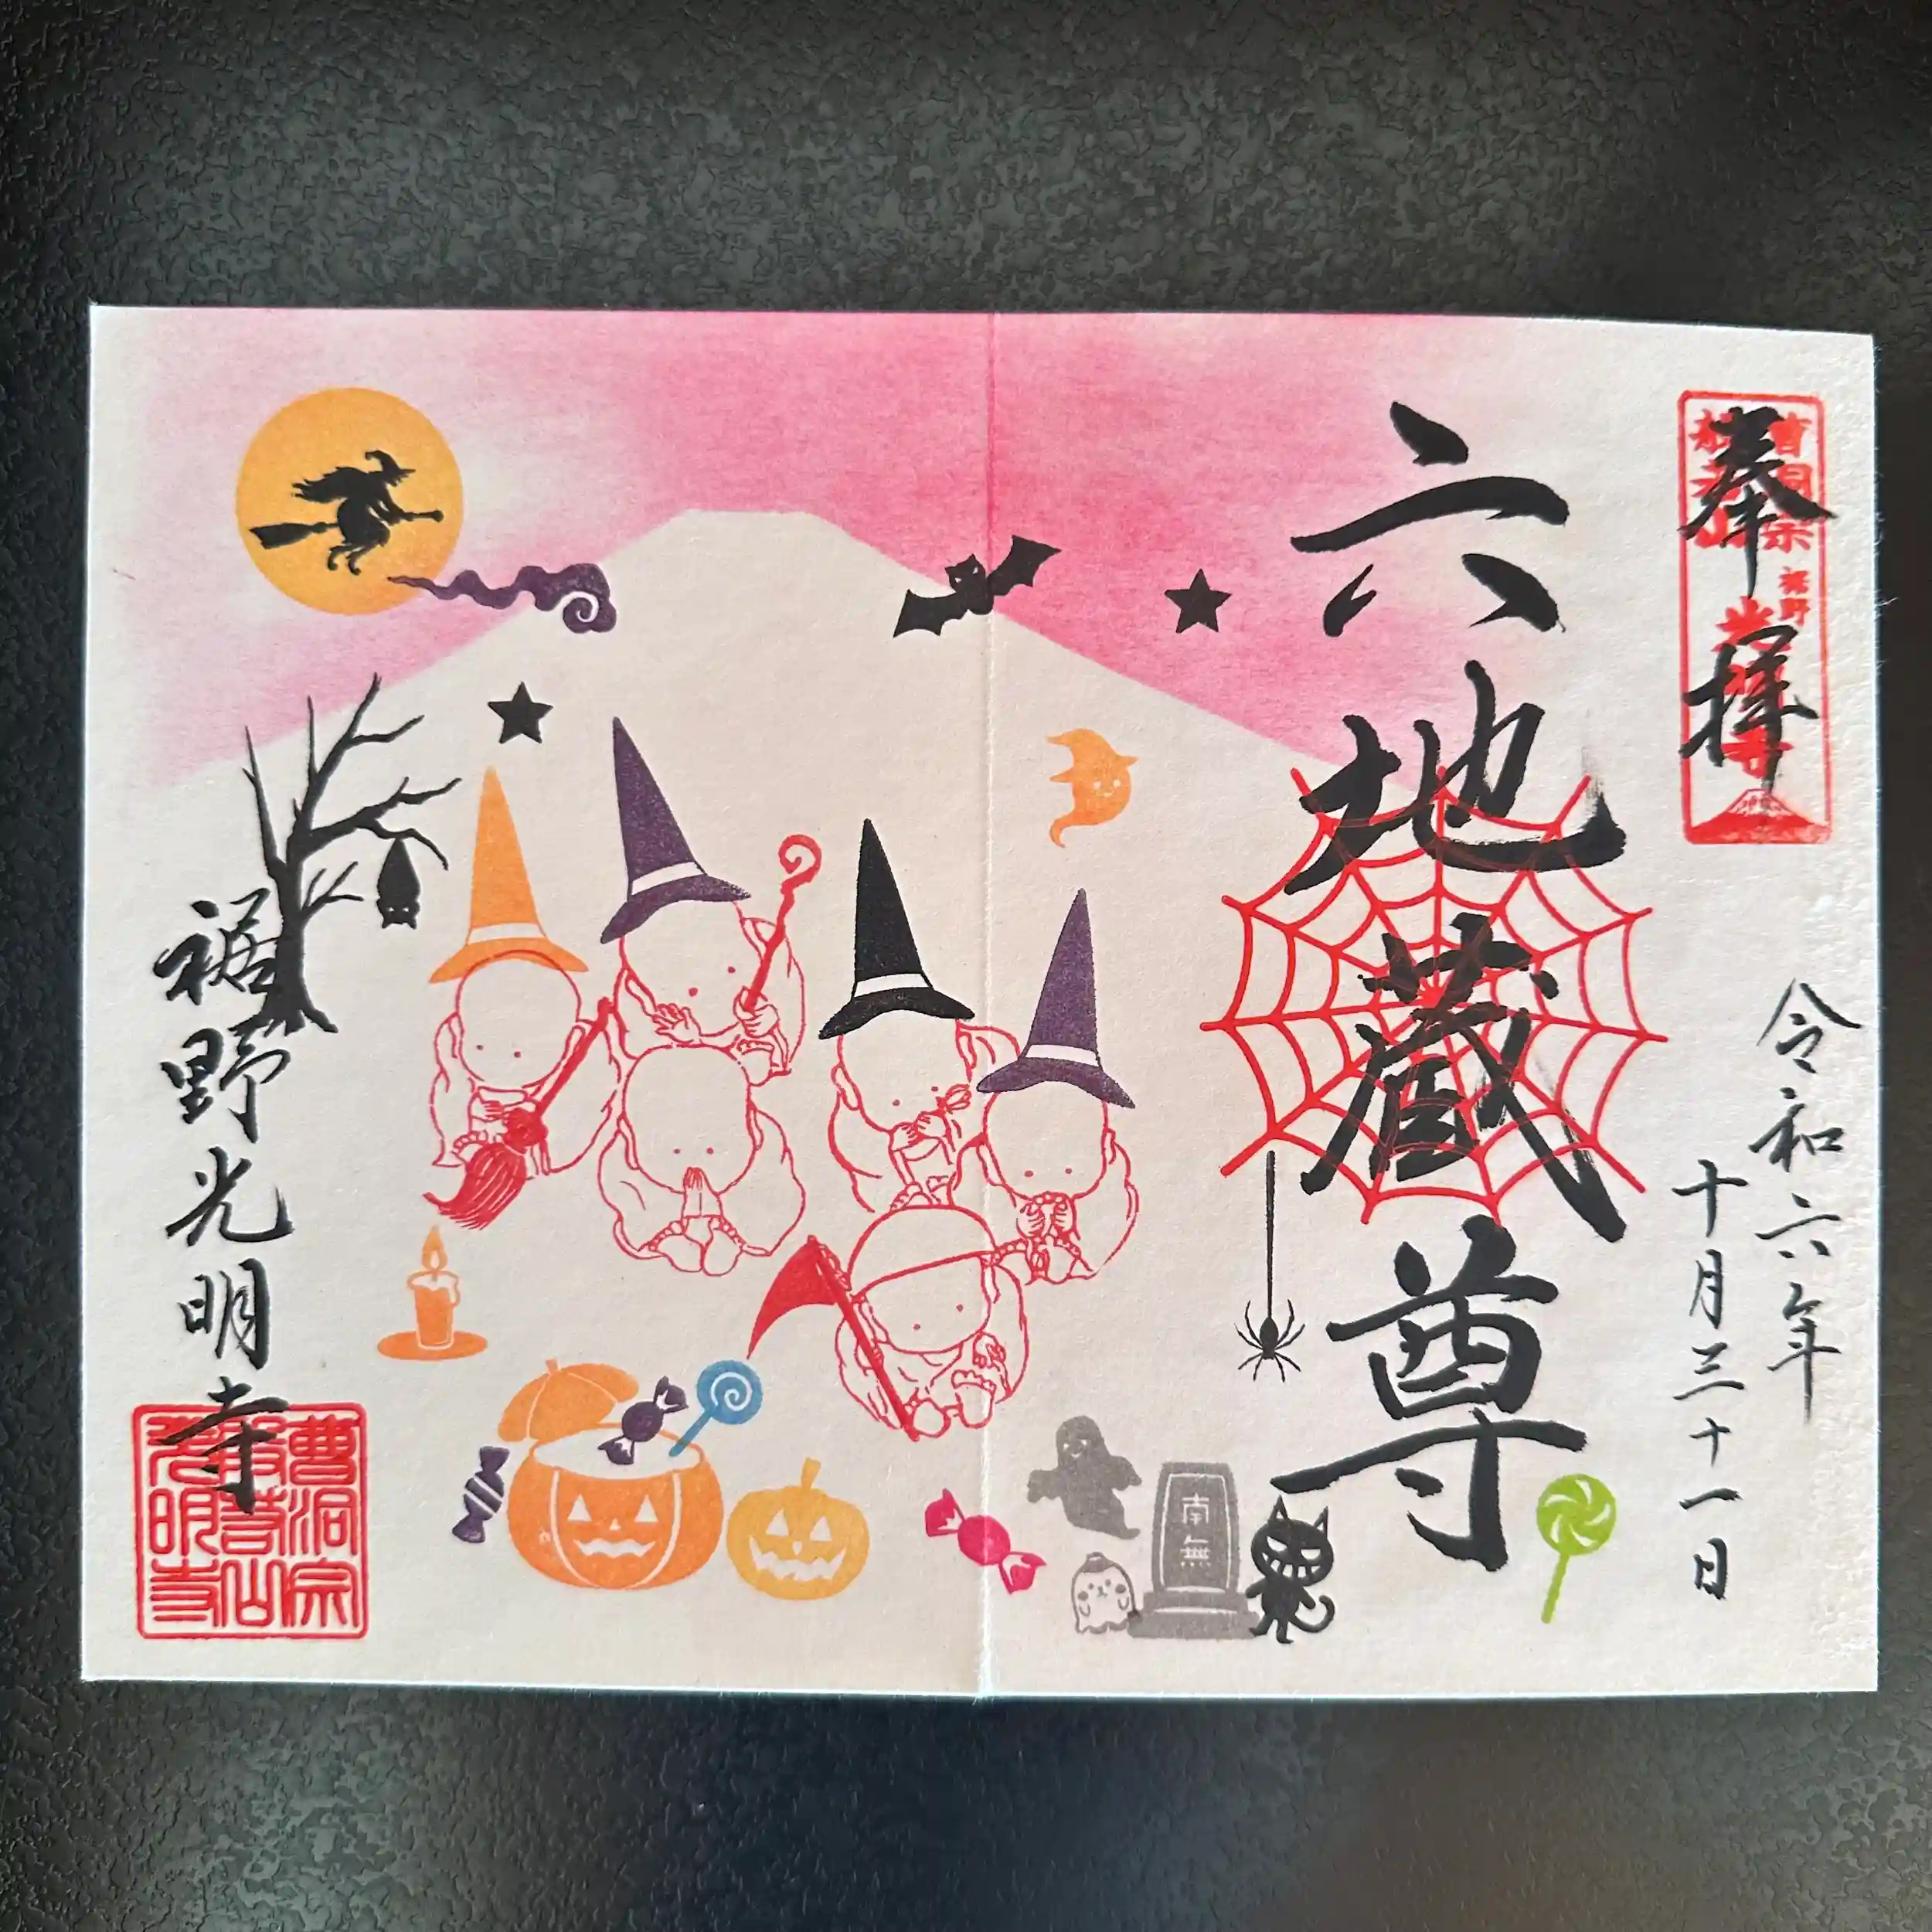 奉拝
曹洞宗
裾野
令和六年
十月三十一日
六地蔵尊
南無
裾野光明寺
曹洞宗
光明寺